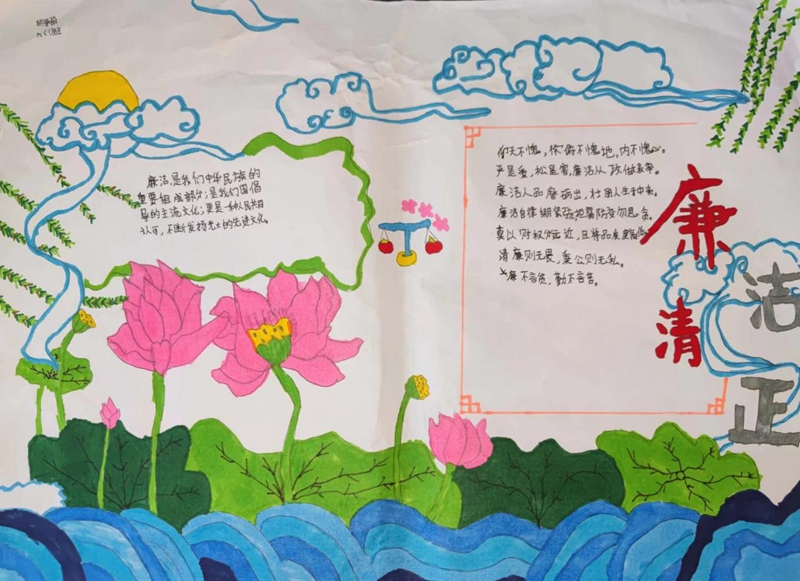 廉洁,是我们中华民族的
重要组成部分;是我们国倡
导的主流文化;更是一种人民共同
认可,不断发扬光大的先进文化。
仰天不愧,俯不愧地,内不愧心。
严是爱,松是害,廉洁从政做表率。
廉洁人品磨砺出,壮丽人生中来。
廉洁自律绷紧弦拒腐防变勿思贪。
莫以财权远近,且将品质高低
清廉则无畏,秉公则无私。
廉不言贫,勤不言苦。
廉
洁
清
正